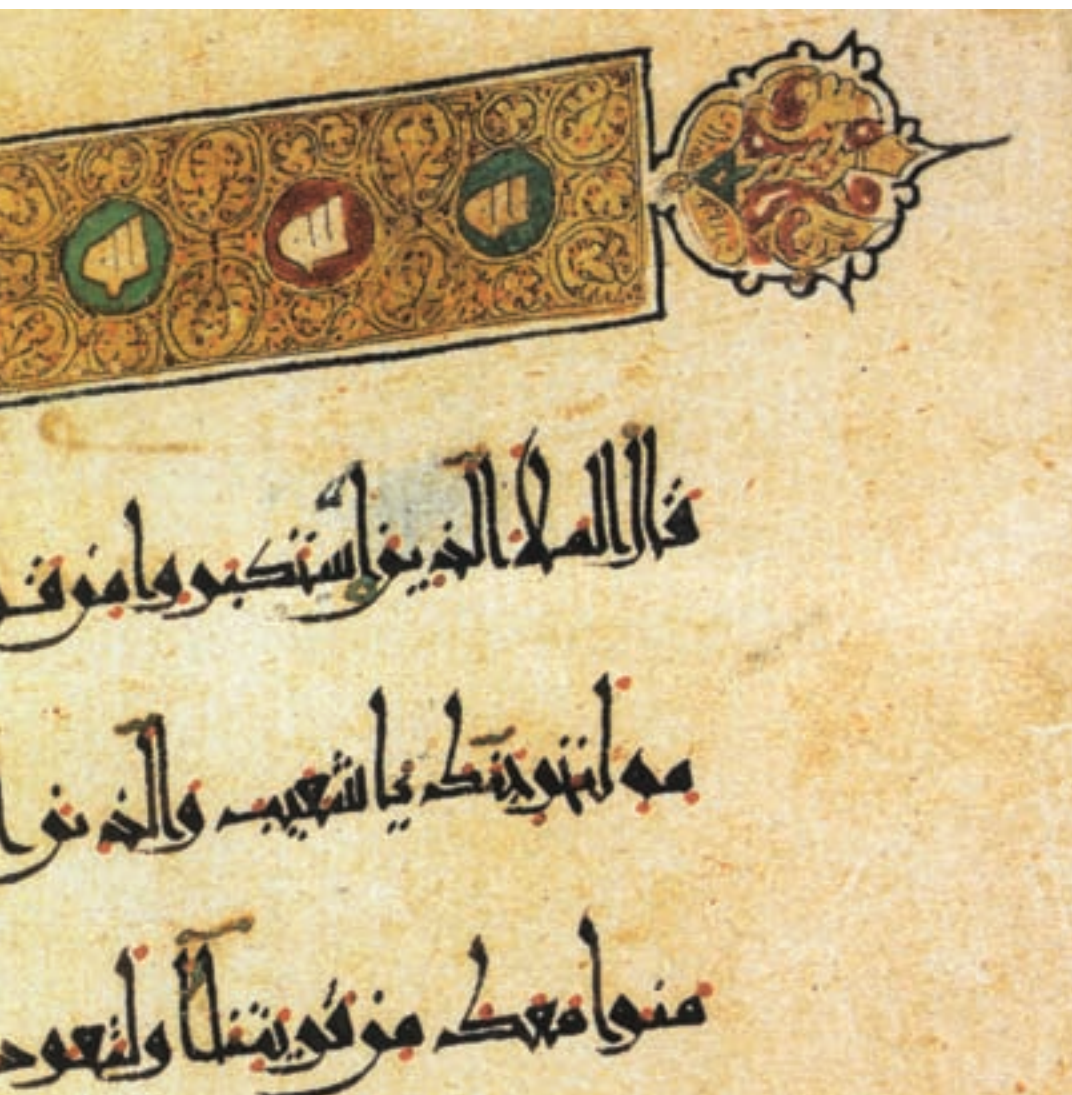 قال الملأ الذين استكبروا من قو
مه لنخرجنك يا شعيب والذين ا
منوا معك من قريتنا أو لتعود